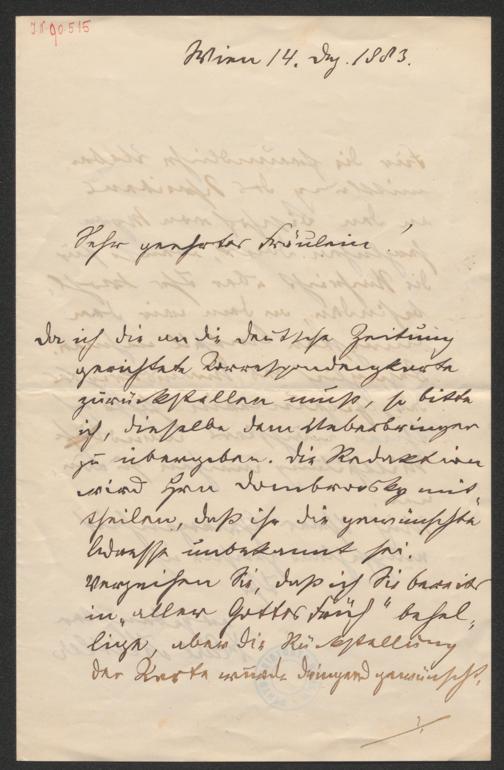 I.N. 90.515
Wien 14. Dez. 1883.
Sehr geehrtes Fräulein!
Da ich die an die deutsche Zeitung
gerichtete Korrespondenzkarte
zurückstellen muß, so bitte
ich, dieselbe dem Ueberbringer
zu übergeben. Die Redaktion
wird Hrn Dombrowsky mit„
theilen, daß ihr die gewünschte
Adresse unbekannt sei.
Verzeihen Sie, daß ich Sie bereits
in „aller Gottes Früh" behel„
lige, aber die Rückstellung
der Karte wurde dringend gewünscht.